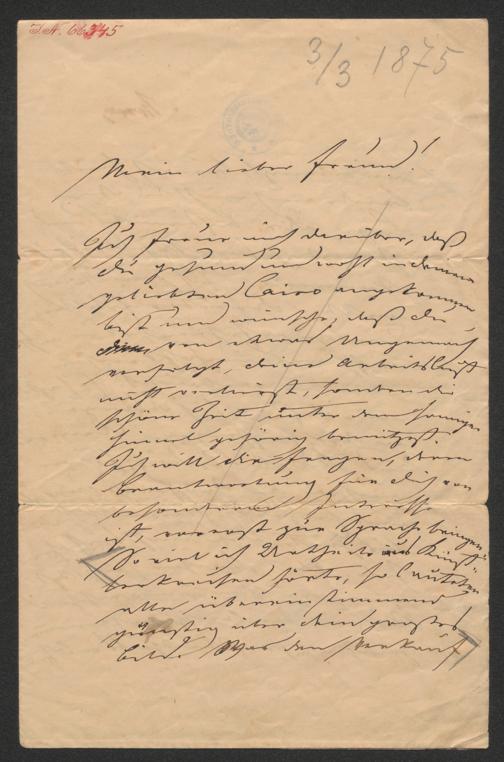 I.N. 66345
3/3 1875
Mein lieber Freund!
Ich freue mich darüber, daß
du gesund und wohl in deinem
geliebten Cairo angekommen
bist und wünsche, daß du
von etwas Ungemach
verfolgt, deine Arbeitslust
nicht verlierst, sondern die
schöne Zeit unter dem sonnigen
Himmel gehörig benützest.
Ich will die Fragen, deren
Beantwortung für dich von
besonderem Interesse
ist, vorerst zur Sprache bringen.
So viel ich Urtheile aus Künst-
lerkreisen hörte, so lauteten
alle übereinstimmend
günstig über dein großes
Bild. Was den Verkauf